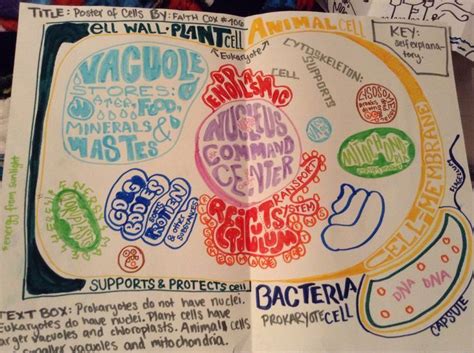 TITLE: Poster of Cells By: FAITH COX #406
CELL WALL-PLANT cell
ANIMAL CELL
KEY:
self explana-
tory.
Eukaryote
CYTOSKELETON:
SUPPORTS
CELL
VACUOLE
STORES:
WATER, FOOD,
MINERALS &
WASTES
ENDOPLASMIC
NUCLEUS
COMMAND
CENTER
RETICULUM
TRANSPORT
LYSOSOME
MITOCHONDRIA
CELL-MEMBRANE
energy from Sunlight
GOLGI
BODIES
& other substances
SUPPORTS & PROTECTS cell
BACTERIA
PROKARYOTE CELL
DNA DNA
CAPSULE
TEXT BOX: Prokaryotes do not have nuclei.
Eukaryotes do have nuclei. Plant cells have
larger vacuoles and chloroplasts. Animal cells
smaller vacuoles and mitochondria.